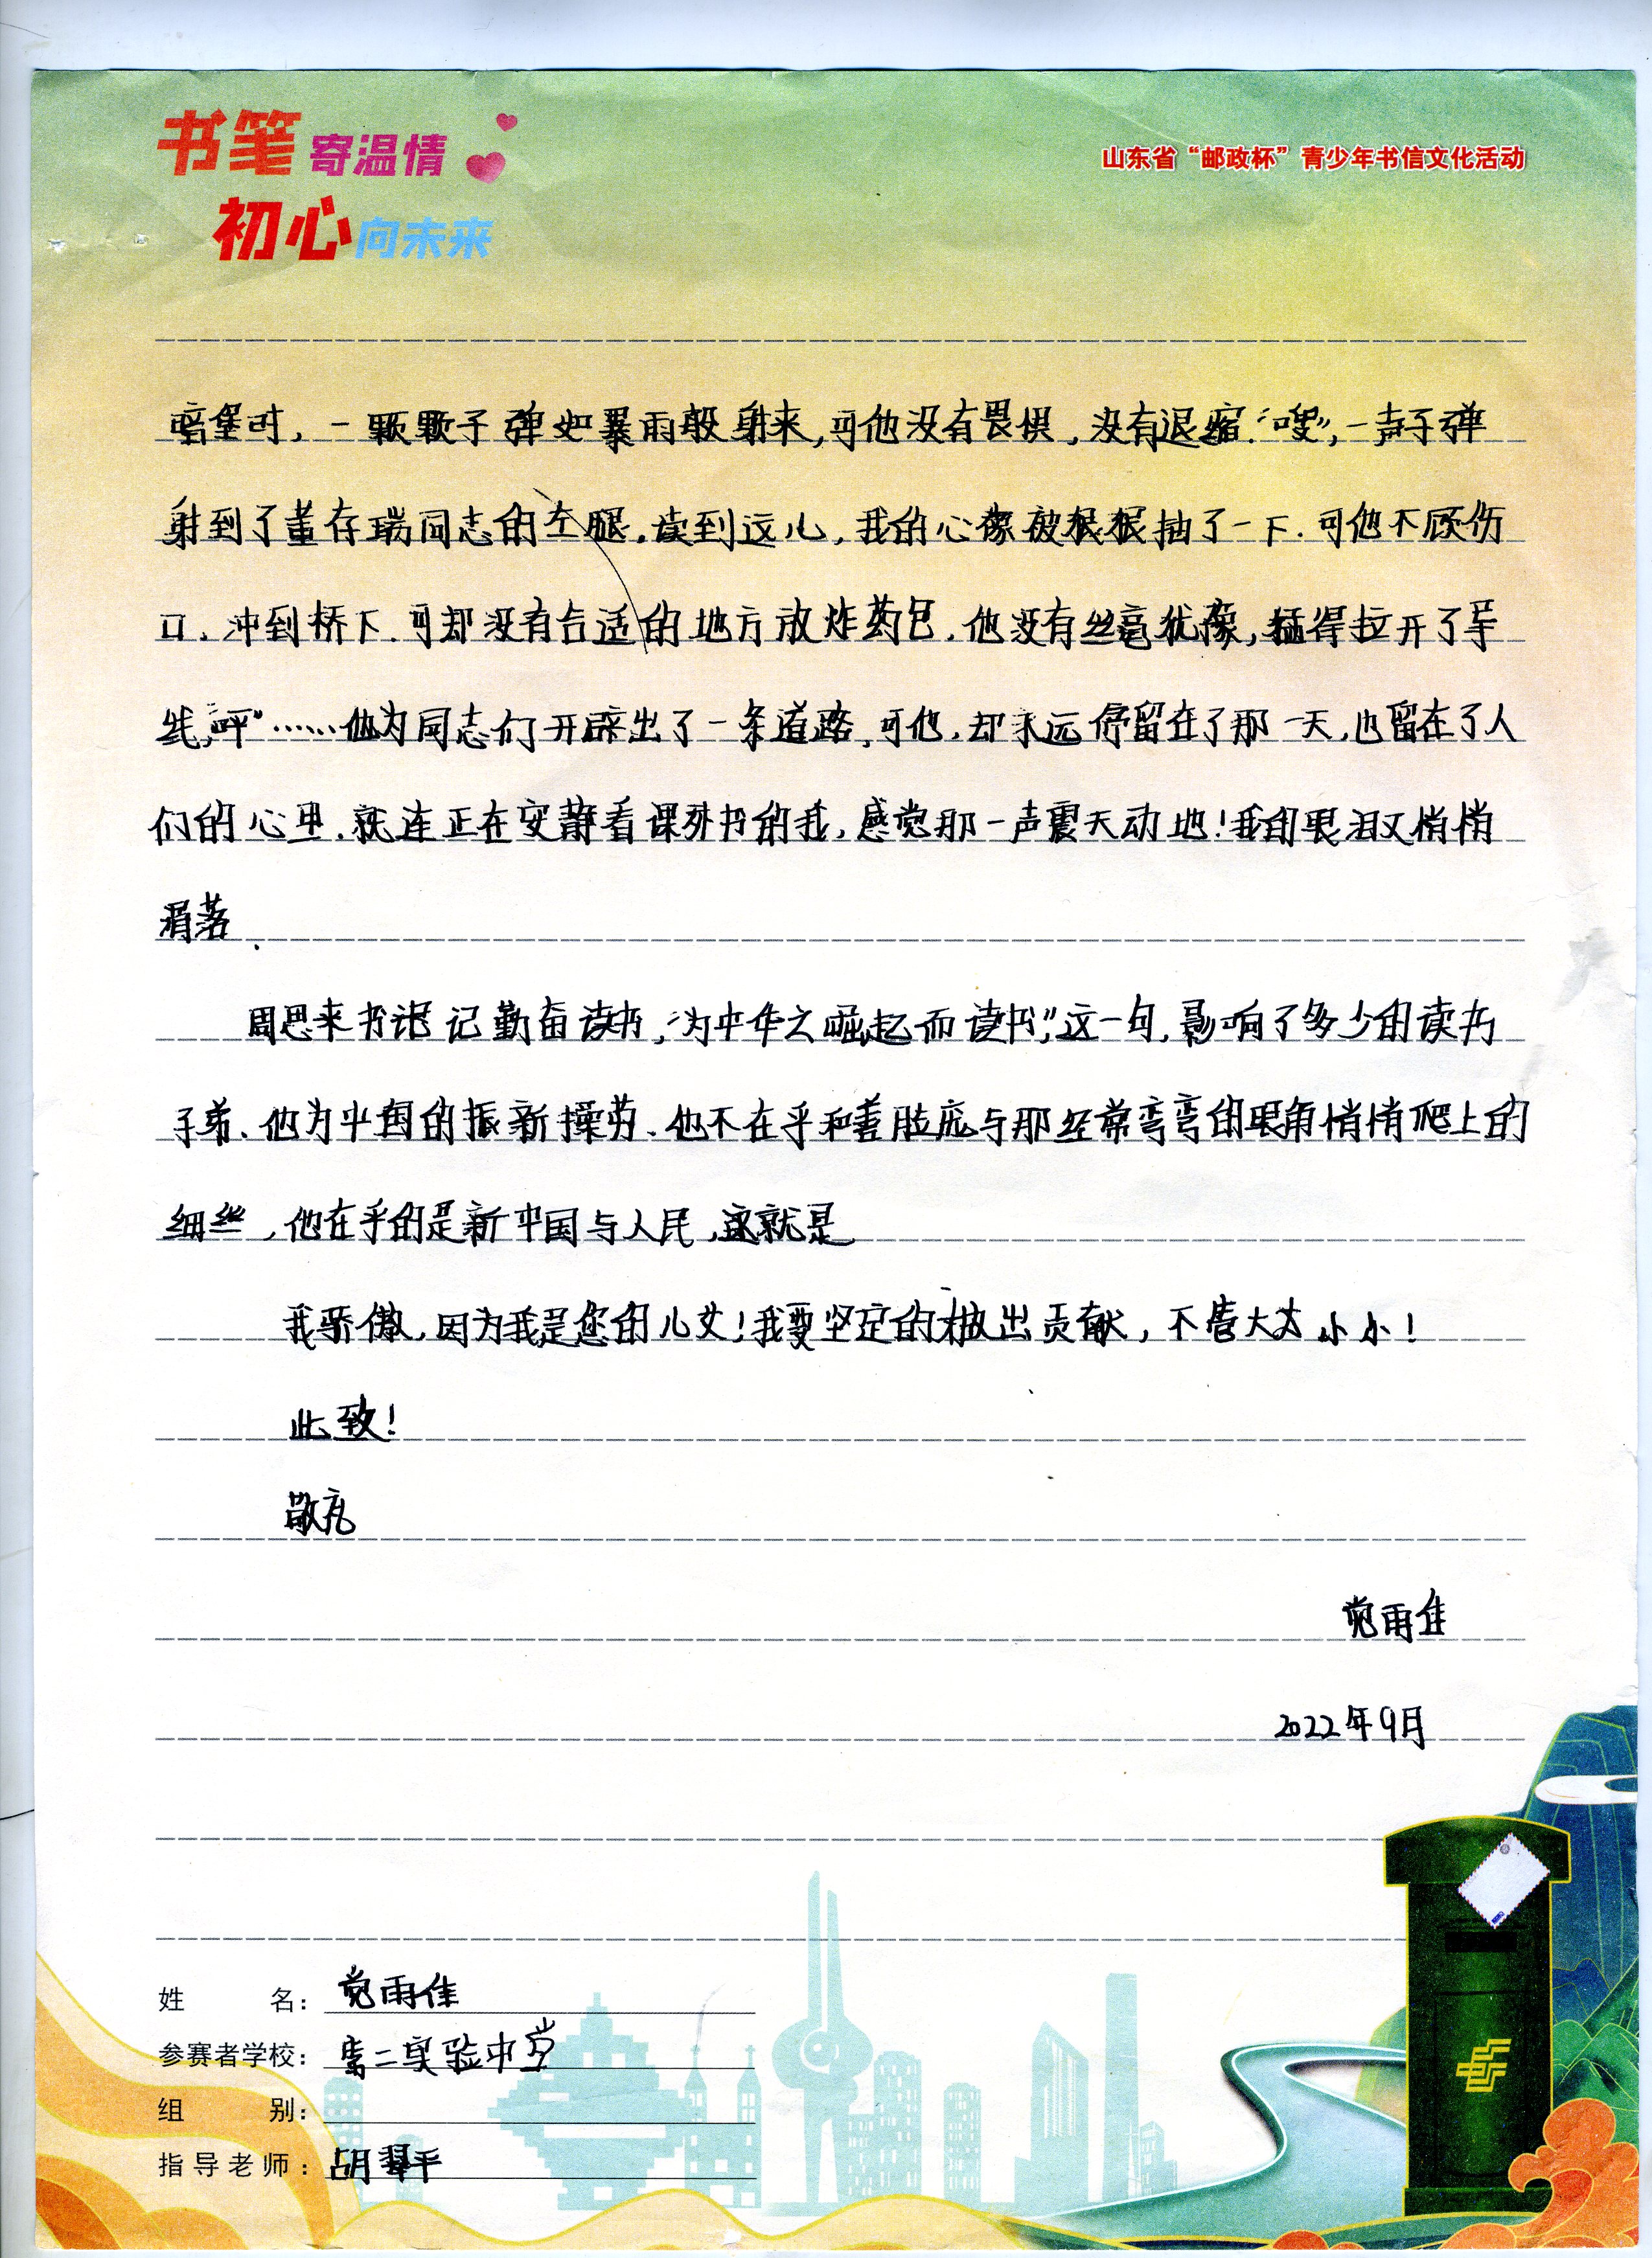 书笔寄温情
初心向未来
山东省“邮政杯”青少年书信文化活动
暗堡时,一颗颗子弹如暴雨般射来,可他没有畏惧,没有退缩.“嗖”,一声子弹
射到了董存瑞同志的左腿.读到这儿,我的心像被狠狠抽了一下.可他不顾伤
口,冲到桥下.可却没有合适的地方放炸药包.他没有丝毫犹豫,猛得拉开了导
线,“呯”……他为同志们开辟出了一条道路,可他,却永远停留在了那一天,也留在了人
们的心里.就连正在安静看课外书的我,感觉那一声震天动地!我的眼泪又悄悄
滑落.
周恩来书记记勤奋读书,“为中华之崛起而读书”,这一句,影响了多少的读书
子弟.他为中国的振新操劳.他不在乎和善脸庞与那经常弯弯的眼角悄悄爬上的
细丝,他在乎的是新中国与人民,这就是
我骄傲,因为我是您的儿女!我要坚定的做出贡献,不管大大小小!
此致!
敬礼
党雨佳
2022年9月
姓 名: 党雨佳
参赛者学校: 第二实验中学
组 别:
指导老师: 胡翠平